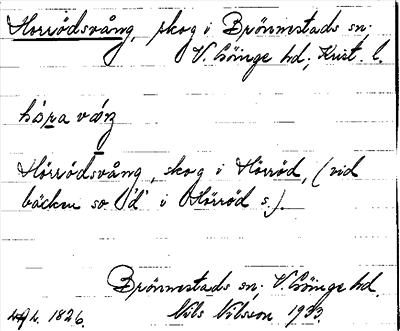 Horrödsvång, skog i Brönnestads sn;
V. Göinge hd; Krist. l.
hȯra váŋ
Hörrödsvång, skog i Hörröd, (vid
bäcken so 'd' i Hörröd s.).
Brönnestads sn; V. Göinge hd.
Nils Nilsson 1933.
1826.